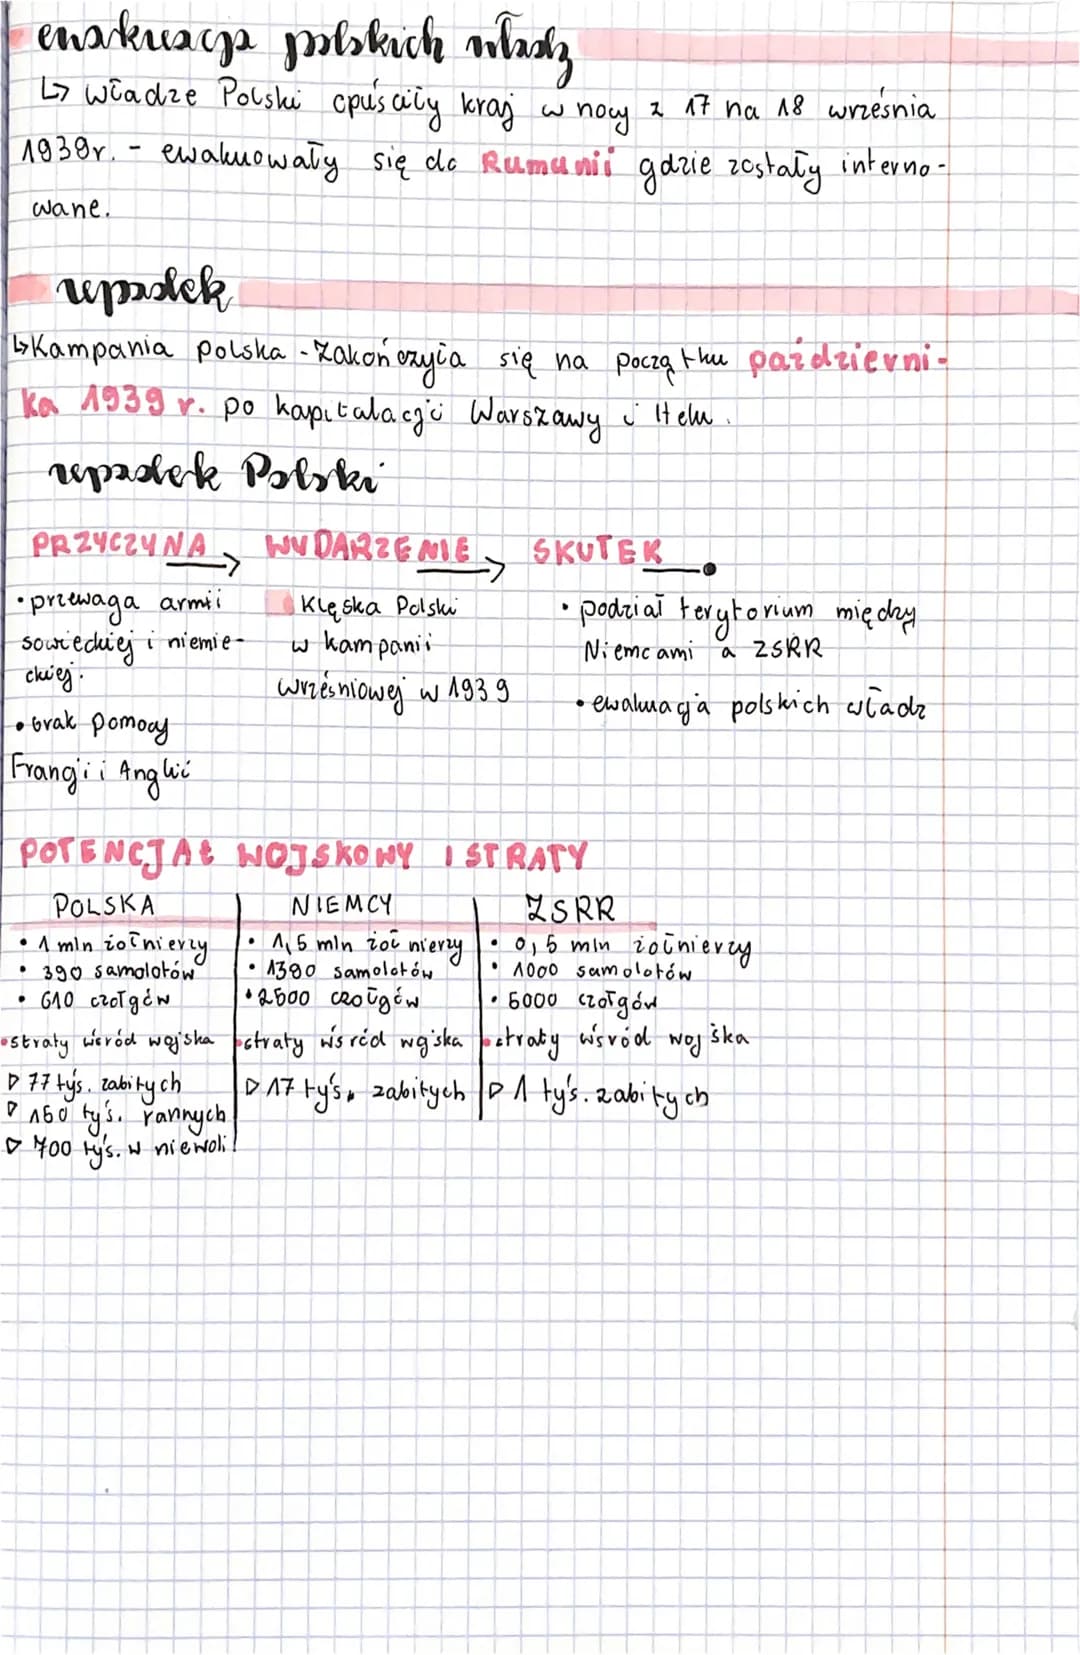 ewakuacja polskich władz
↳ władze Polski opuściły kraj w nocy z 17 na 18 września
1939r. - ewakuowały się do Rumunii gdzie zostały interno-
wane.
upadek
↳Kampania polska - Zakończyła się na początku październi-
ka 1939 r. po kapitulacji Warszawy i Helu.
upadek Polski
PRZYCZYNA → WYDARZENIE → SKUTEK
• przewaga armii
sowieckiej i niemie-
ckiej.
• brak pomocy
Francji i Anglii
Klęska Polski
w kampanii
wrześniowej w 1939
• podział terytorium między
Niemcami a ZSRR
• ewakuacja polskich władz
POTENCJAŁ WOJSKOWY I STRATY
POLSKA
• 1 mln żołnierzy
• 390 samolotów
• 610 czołgów
• straty wśród wojska
▷ 77 tyś. zabitych
▷ 160 tyś. rannych
▷ 700 tyś. w niewoli
NIEMCY
• 1,5 mln żołnierzy
• 1390 samolotów
• 2500 czołgów
• straty wśród wojska
▷ 17 tyś. zabitych
ZSRR
• 0,5 mln żołnierzy
• 1000 samolotów
• 5000 czołgów
• straty wśród wojska
▷ 1 tyś. zabitych